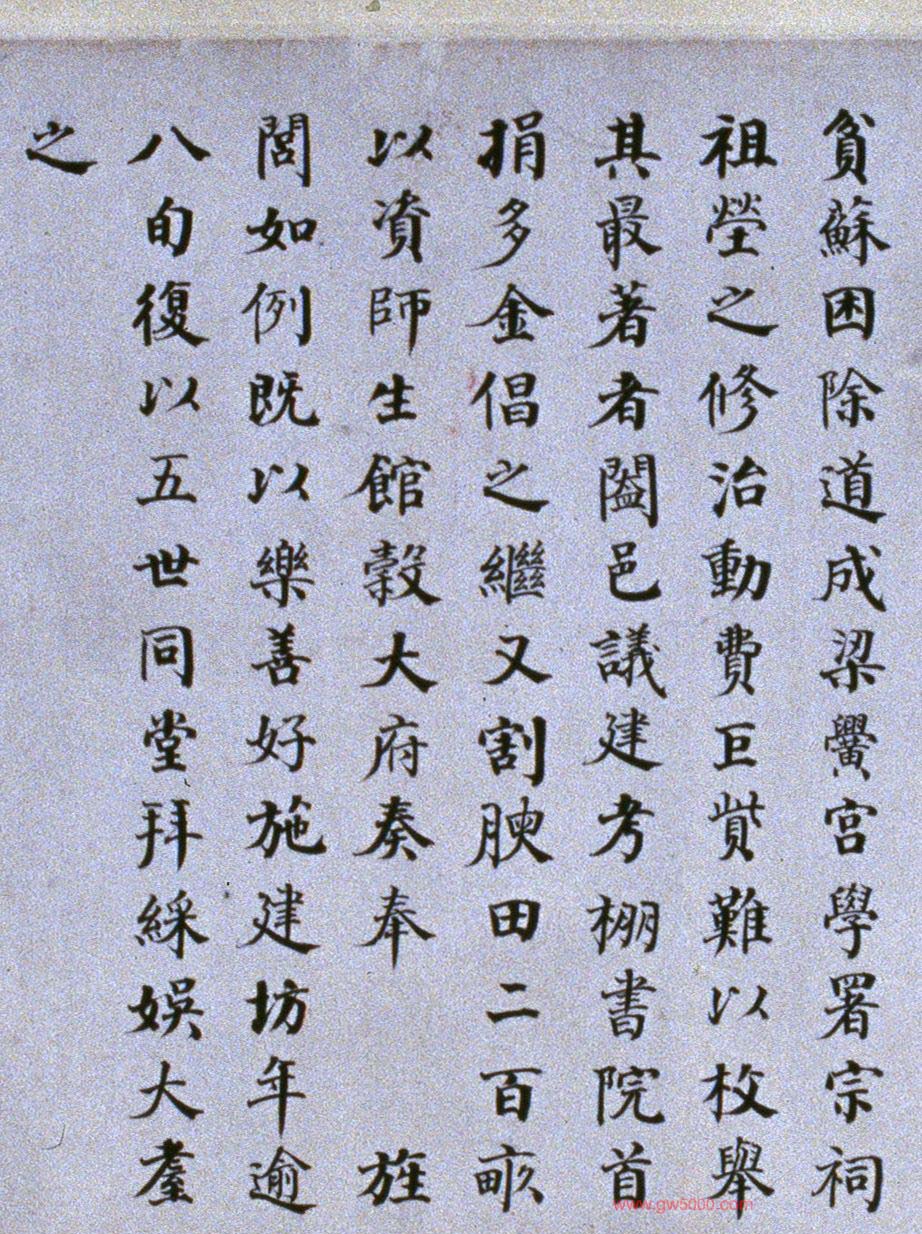 貧蘇困除道成梁黌宮學署宗祠
祖塋之修治動費巨貲難以枚舉
其最著者闔邑議建考棚書院首
捐多金倡之繼又割腴田二百畝
以資師生館穀大府奏奉 旌
閭如例既以樂善好施建坊年逾
八旬復以五世同堂拜綵娛大耋
之
www.gw5000.com